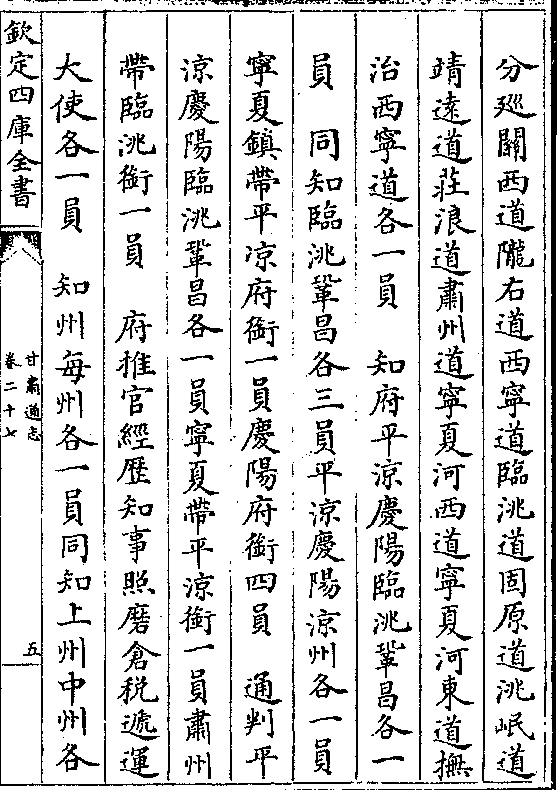 分廵關西道隴右道西寧道臨洮道固原道洮岷道
靖遠道莊浪道肅州道寧夏河西道寧夏河東道撫
治西寧道各一員　知府平涼慶陽臨洮鞏昌各一
員　同知臨洮鞏昌各三員平涼慶陽涼州各一員
寧夏鎮帶平凉府銜一員慶陽府銜四員　通判平
涼慶陽臨洮鞏昌各一員寧夏帶平涼銜一員肅州
帶臨洮銜一員　府推官經歴知事照磨倉稅遞運
大使各一員　知州每州各一員同知上州中州各
欽定四庫全書
甘肅通志
卷二十七
五